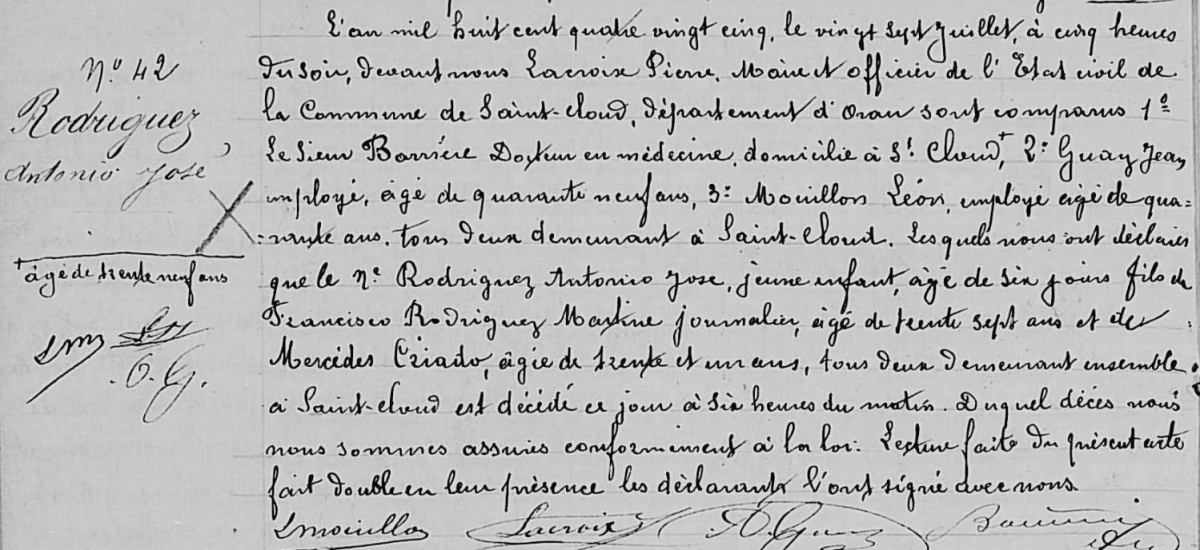 N° 42
Rodriguez
Antonio José
+ âgé de trente neuf ans
L'an mil huit cent quatre vingt cinq, le vingt sept Juillet, à cinq heures
du soir, devant nous Lacroix Pierre, Maire et officier de l'Etat civil de
la Commune de Saint-Cloud, département d'Oran sont comparus 1°
Le Sieur Barrère Docteur en médecine, domicilié à St Cloud,+ 2° Guay Jean
employé, âgé de quarante neuf ans, 3° Mouillon Léon, employé âgé de qua=
=rante ans, tous deux demeurant à Saint-Cloud. Lesquels nous ont déclarés
que le né Rodriguez Antonio Jose, jeune enfant, âgé de six jours fils de
Francisco Rodriguez Martine journalier, âgé de trente sept ans et de
Mercédès Criado, âgée de trente et un ans, tous deux demeurant ensemble
à Saint-Cloud est décédé ce jour à six heures du matin. Duquel décès nous
nous sommes assurés conformément à la loi. Lecture faite du présent acte
fait double en leur présence les déclarants l'ont signé avec nous.
LMouillon Lacroix